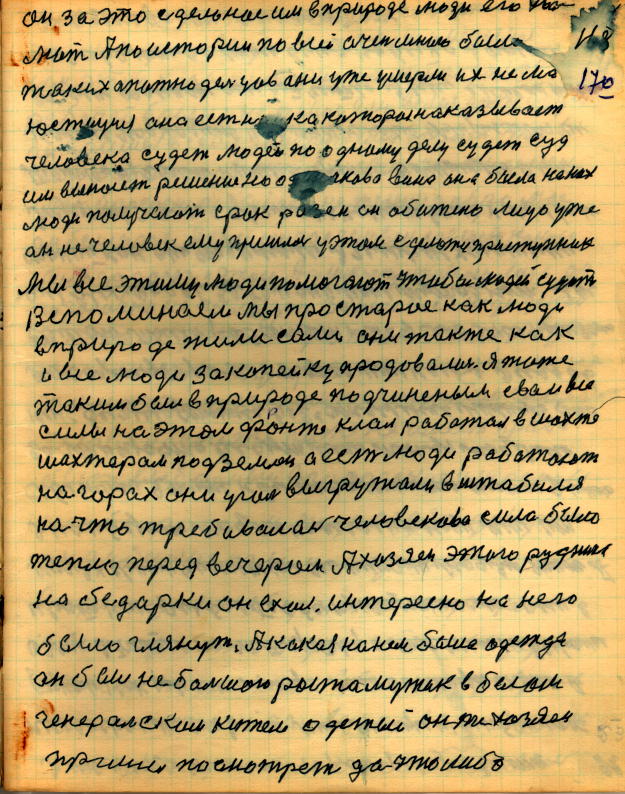 он за это сделаное им в природе люди его
118
170
мают А по истории по всей очен много было
таких они уже умерли их не ма
юстыция она есть ка которы наказывает
человека судет людей по одному делу судет суд
им выносет решение но какова вина она была на них
люди получают срок розен он обижено лицо уже
он не человек ему пришлос у этом зделат приступник
Мы все этому люди помогают чтобы людей судит
Вспоминаем мы про старое как люди
в природе жили сами они так же как
и все люди за копейку продовалис. Я тоже
таким был в природе подчиненым свои все
силы на этом фронте клал работал в шахте
шахтером под землей а ест люди работают
на горах они угол выгружали в штабиля
на что требовалас человекова сила было
тепло перед вечером А хозяен этого рудника
на бедарки он ехал. интересно на него
было глянут. А какая на нем была одежда
он был не большого роста мужик в белом
генералском кителе одетый он хозяен
пришол посмотрет да что либо